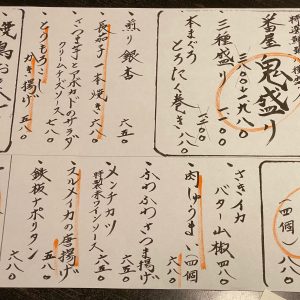 番屋 鬼盛り
三〇〇〇 一九八〇
三種盛り 一二〇〇
本まぐろ
とろたく巻き 八八〇
煎り銀杏 六五〇
長茄子一本焼き 六八〇
さつま芋とアボカドのサラダ
クリームチーズソース 七八〇
とうもろこし
かき揚げ 五八〇
(四個)
八八〇
さきイカ
バター山椒 四八〇
肉しゅうまい 四個
六八〇
ふわふわさつま揚げ 六五〇
メンチカツ
特製赤ワインソース 六八〇
スルメイカの唐揚げ 五八〇
鉄板ナポリタン 六八〇